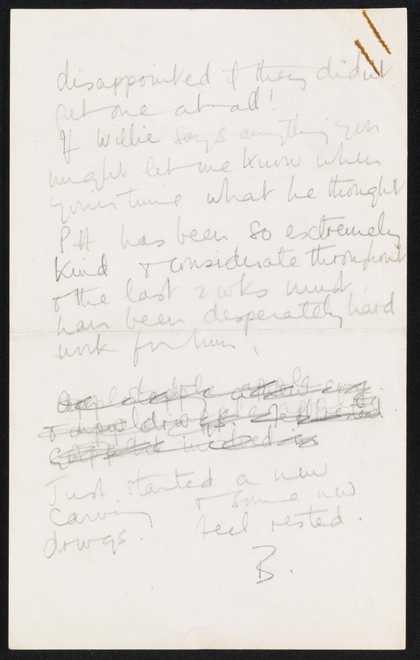 disappointed if they didn't
get one at all!
If Willie says anything you
might let me know when
you've time what he thought
P.H has been so extremely
kind & considerate throughout
& the last 2 wks must
have been desperately hard
work for him.
Just started a new
carving & some new
drwgs. feel rested.
B.